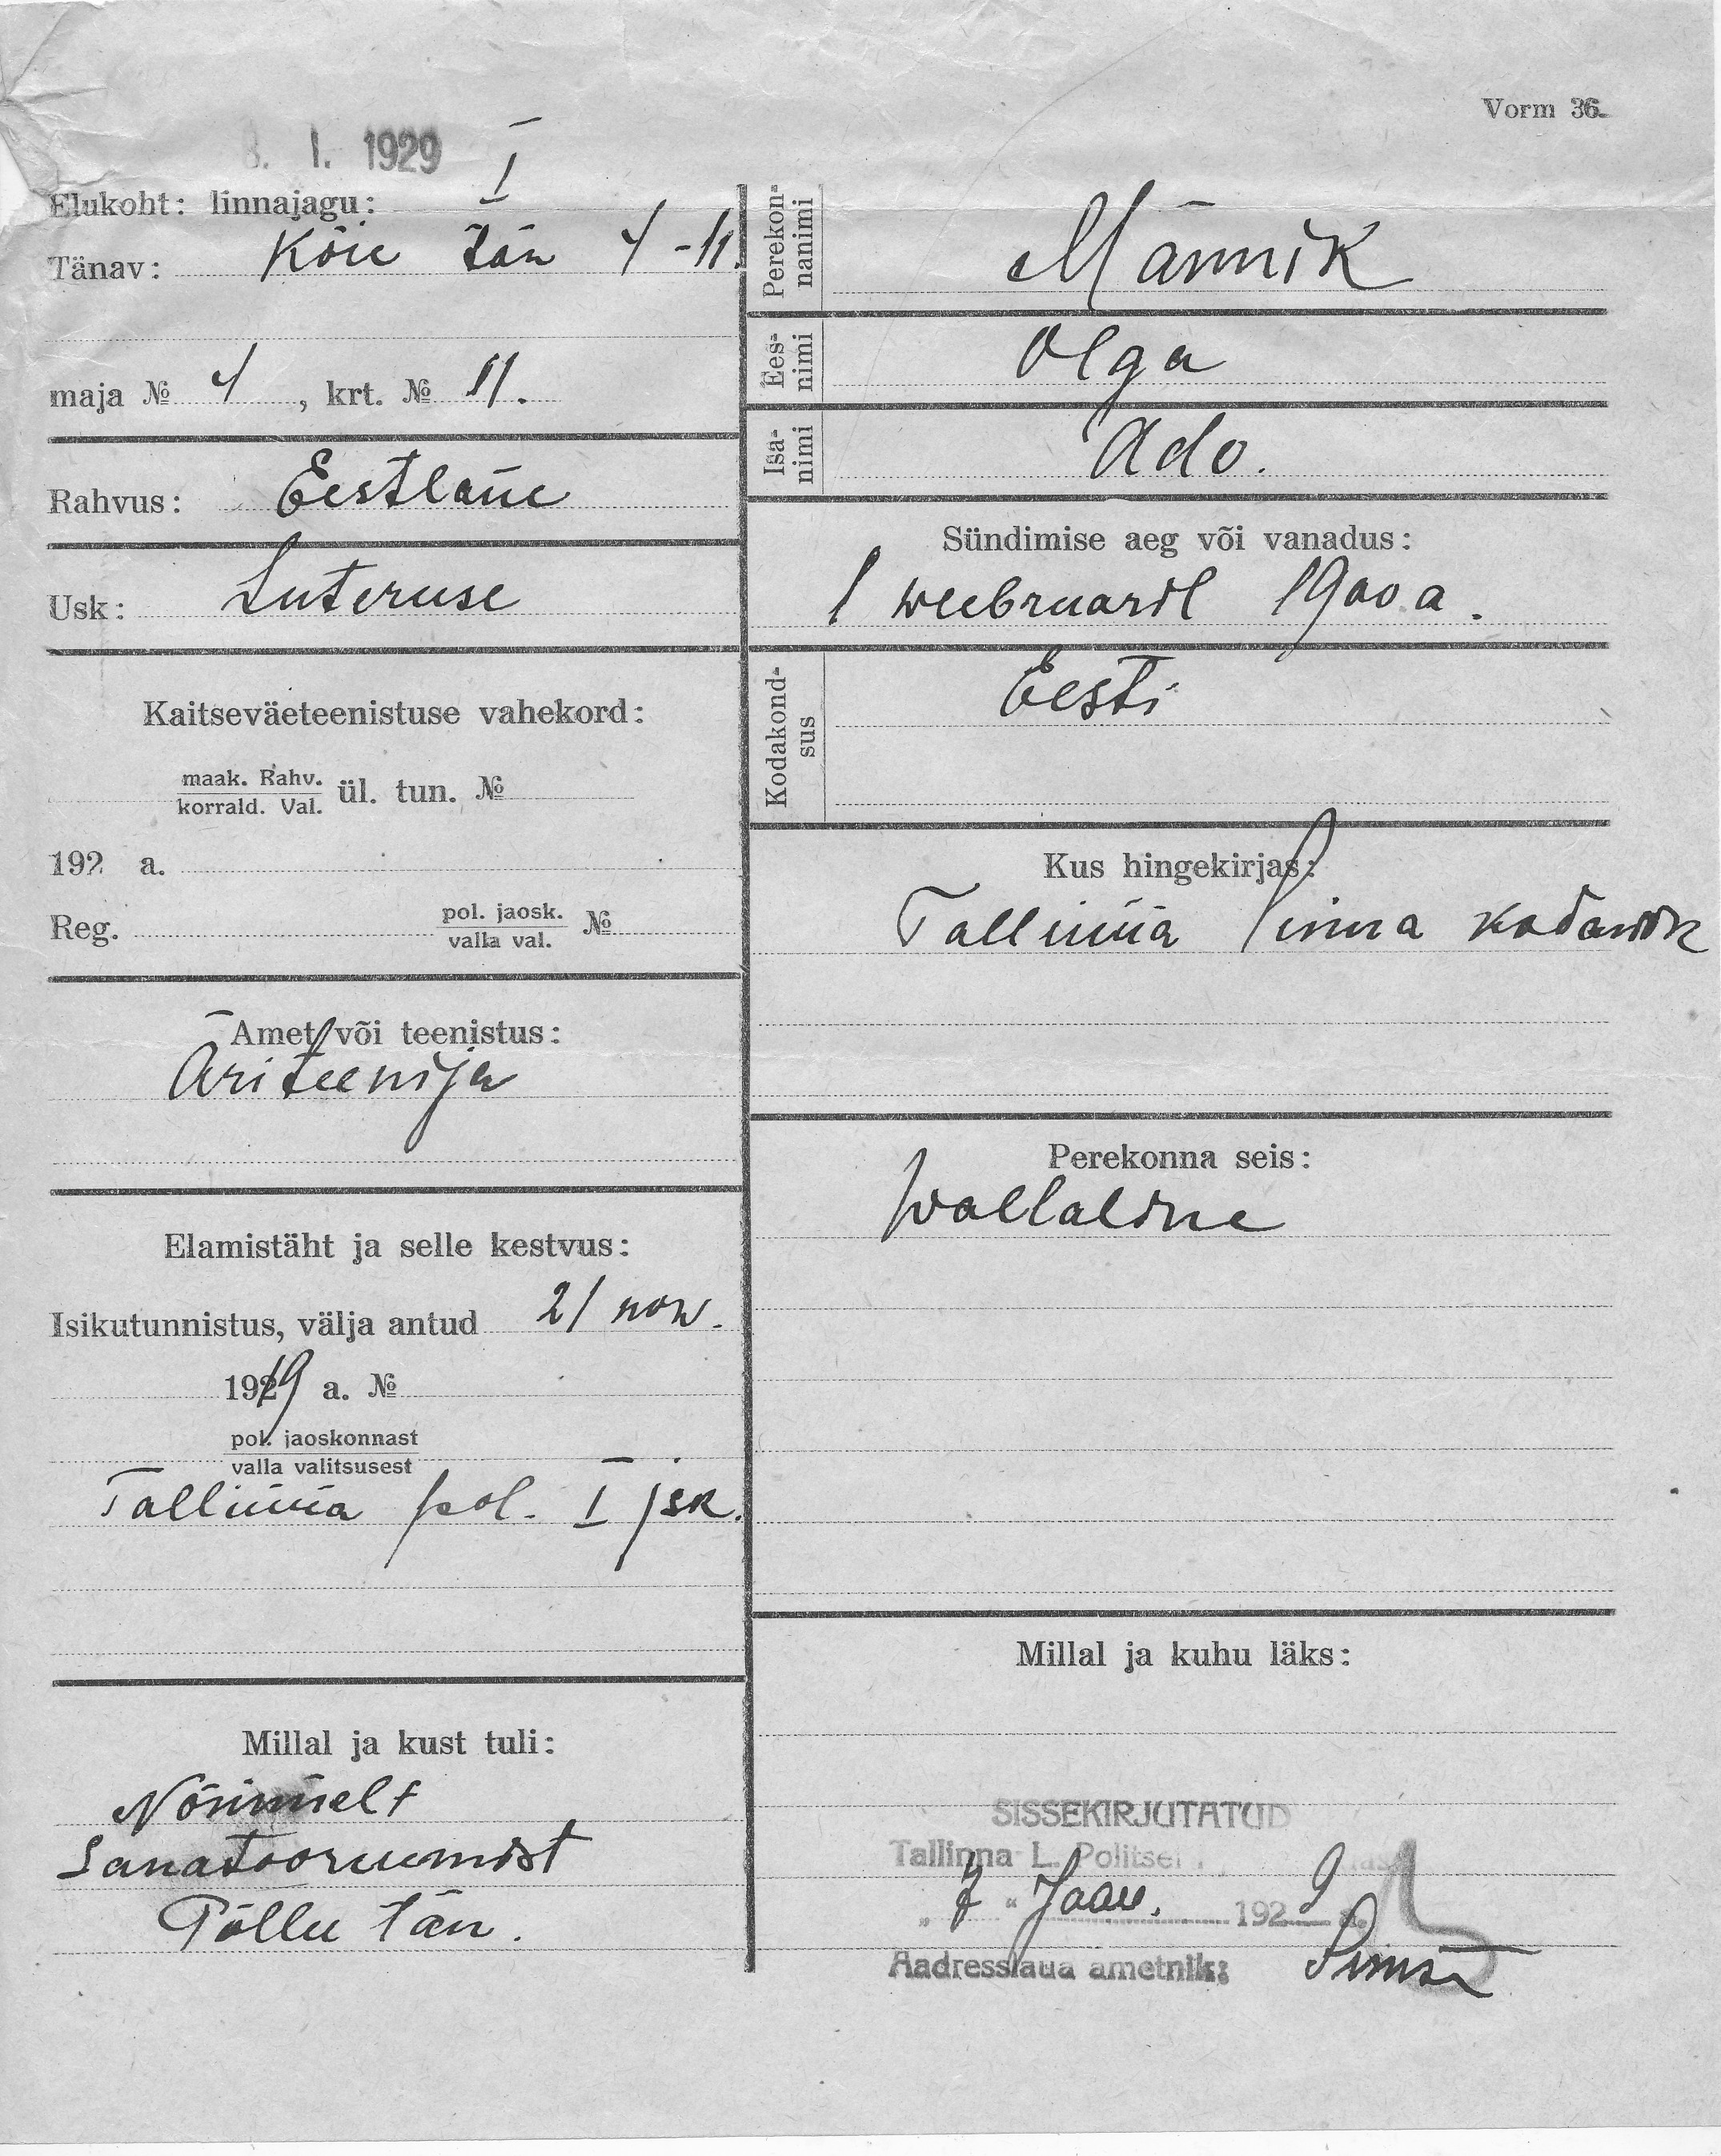 Vorm 36.
8. I. 1929
Elukoht: linnajagu: I
Tänav: Köie tän 4-11.
maja № 4, krt. № 11.
Rahvus: Eestlane
Usk: Luteruse
Kaitseväeteenistuse vahekord:
maak. Rahv.
korrald. Val. ül. tun. №
192 a.
Reg. pol. jaosk. №
valla val.
Amet või teenistus:
Äriteenija
Elamistäht ja selle kestvus:
Isikutunnistus, välja antud 21 now.
1919 a. №
pol. jaoskonnast
valla valitsusest
Tallinna pol. I jsk.
Millal ja kust tuli:
Nõmmelt
Sanatooriumist
Põllu tän.
Perekonnanimi Männik
Eesnimi Olga
Isanimi Ado.
Sündimise aeg või vanadus:
1 weebruaril 1900 a.
Kodakondsus Eesti
Kus hingekirjas:
Tallinna linna kodanik
Perekonna seis:
Wallaline
Millal ja kuhu läks:
SISSEKIRJUTATUD
Tallinna L. Politsei
" " Jaan. 1929 a.
Aadresslaua ametnik: